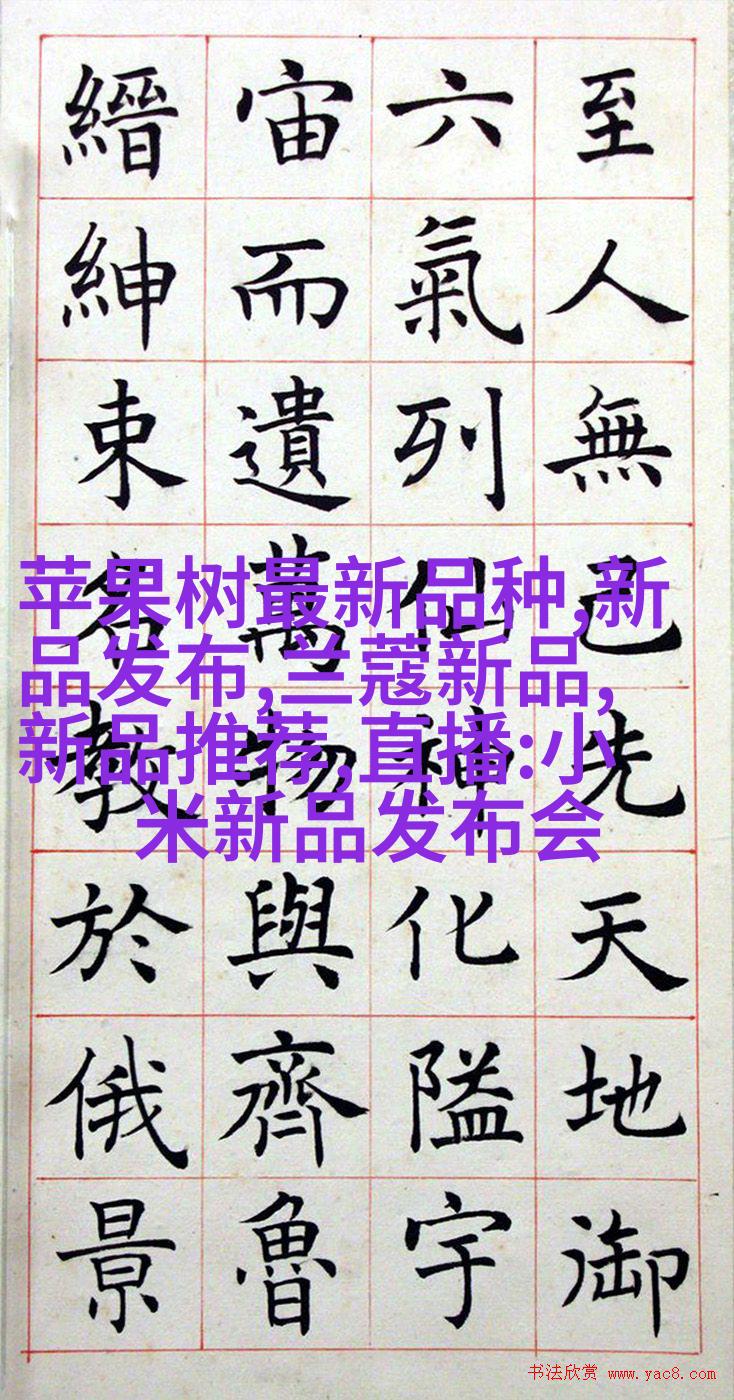 至人無己先天地御
六氣列仙神化隘宇
宙而遺萬物與齊魯
縉紳束名教於俄景
苹果树最新品种,新
品发布,兰蔻新品,
新品推荐,直播:小
米新品发布会
书法欣赏 www.yac8.com